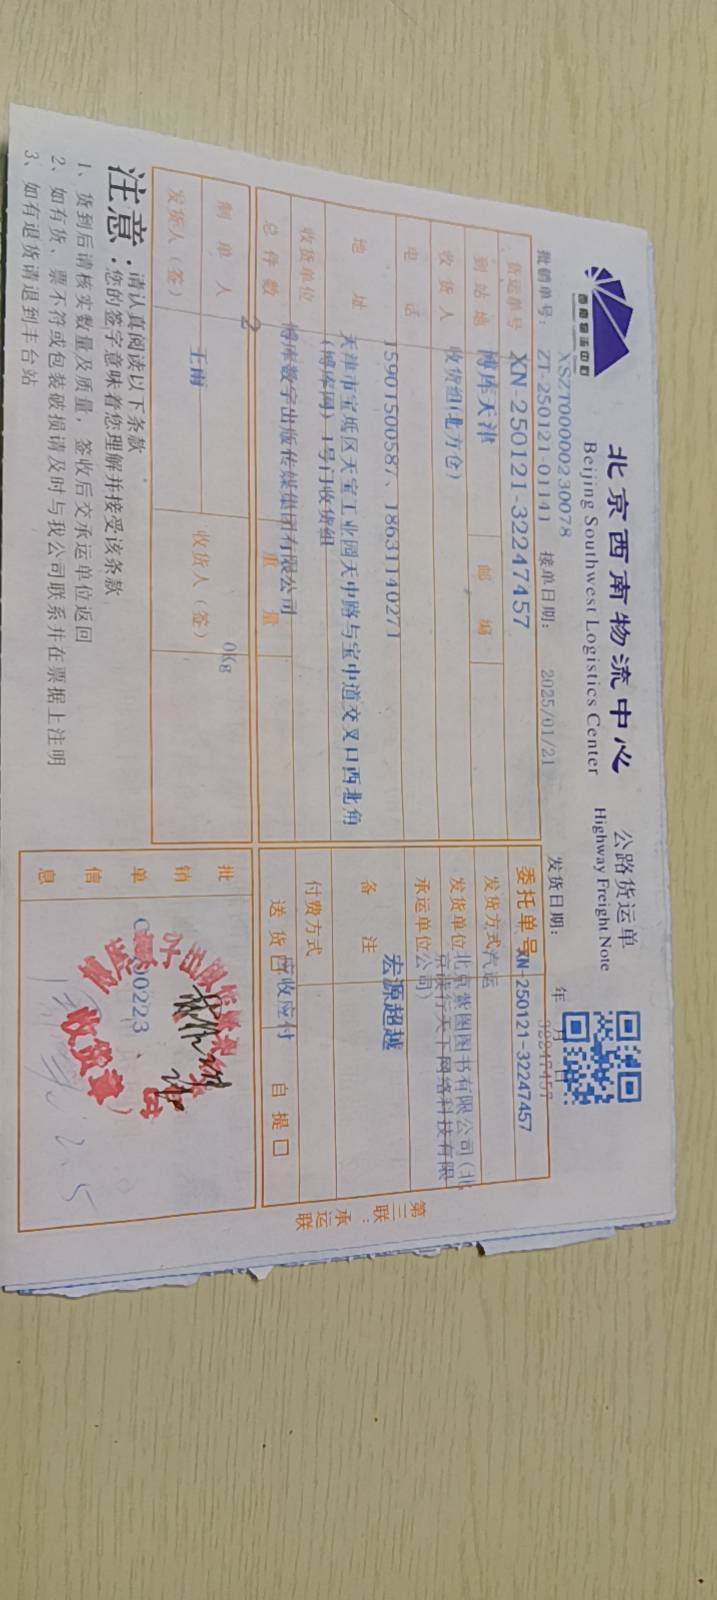 西南物流中心
北京西南物流中心
Beijing Southwest Logistics Center
公路货运单
Highway Freight Note
XSZT00000230078
批销单号: ZT-250121-01141 接单日期: 2025/01/21 发货日期: 年
32247457
货运单号 XN-250121-32247457 委托单号 XN-250121-32247457
到站地 博库天津 邮编 发货方式 汽运
收货人 收货组(北方仓) 发货单位 北京紫图图书有限公司(北
电话 15901500587、18631140271 承运单位 公司)
地址 天津市宝坻区天宝工业园天中路与宝中道交叉口西北角
(博库网) 1号门收货组
备注 宏源超越
收货单位 博库数字出版传媒集团有限公司 付费方式 应收应付
总件数 2 重量 0Kg 送货 自提口
制单人 王雨 收货人(签)
发货人(签)
批销单信息
00223、
收货章
2.5
注意: 请认真阅读以下条款
您的签字意味着您理解并接受该条款
1、货到后请核实数量及质量,签收后交承运单位返回
2、如有货、票不符或包装破损请及时与我公司联系并在票据上注明
3、如有退货请退到丰台站
第三联:承运联